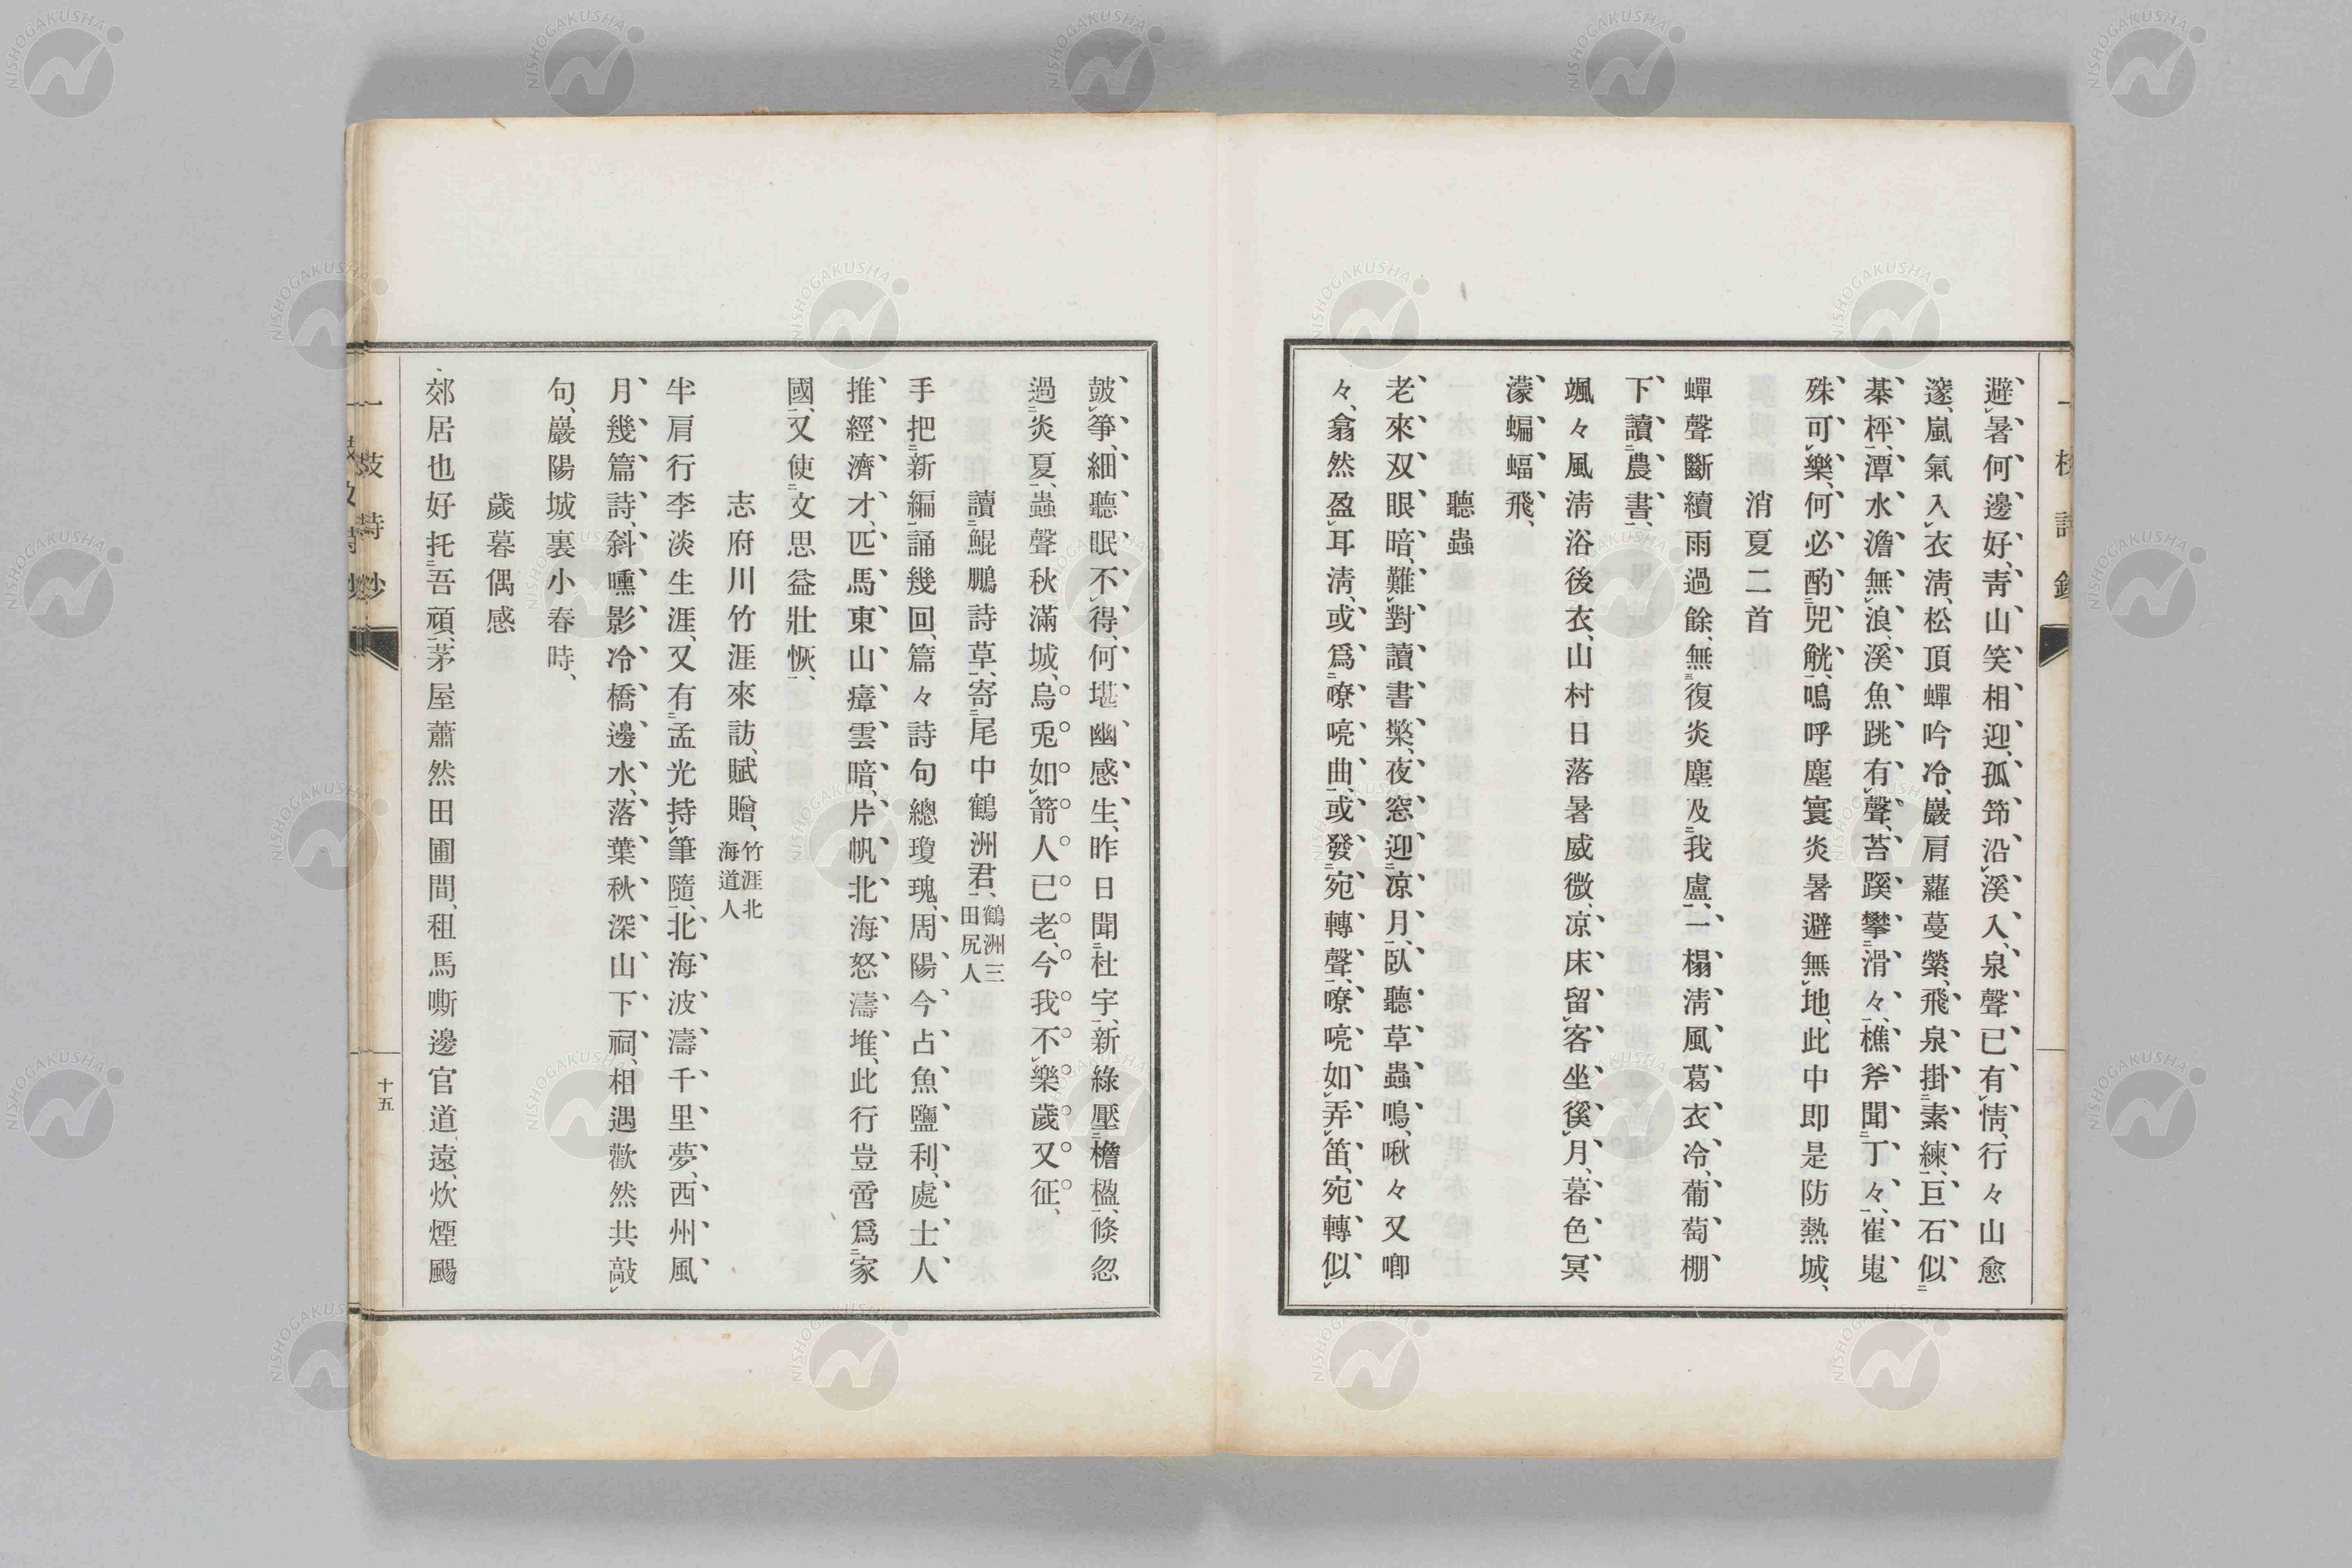 避暑何邊好、靑山笑相迎、孤筇沿溪入、泉聲已有情、行々山愈
邃、嵐氣入衣淸、松頂蟬吟冷、巖肩蘿蔓縈、飛泉掛素練、巨石似
棊枰、潭水澹無浪、溪魚跳有聲、苔蹊攀滑々、樵斧聞丁々、崔嵬
殊可樂、何必酌兕觥、嗚呼塵寰炎暑避無地、此中即是防熱城、
消夏二首
蟬聲斷續雨過餘、無復炎塵及我廬、一榻淸風葛衣冷、葡萄棚
下讀農書、
颯々風淸浴後衣、山村日落暑威微、凉床留客坐徯月、暮色冥
濛蝙蝠飛、
聽蟲
老來双眼暗、難對讀書檠、夜窓迎凉月、臥聽草蟲鳴、啾々又喞
々、翕然盈耳淸、或爲嘹喨曲、或發宛轉聲、嘹喨如弄笛、宛轉似
皷箏、細聽眠不得、何堪幽感生、昨日聞杜宇、新綠壓檐楹、倐忽
過炎夏、蟲聲秋滿城、烏兎如箭人已老、今我不樂歲又征、
讀鯤鵬詩草、寄尾中鶴洲君、鶴洲三田尻人
手把新編誦幾回、篇々詩句總瓊瑰、周陽今占魚鹽利、處士人
推經濟才、匹馬東山瘴雲暗、片帆北海怒濤堆、此行豈啻爲家
國、又使文思益壯恢、
志府川竹涯來訪、賦贈、竹涯北海道人
半肩行李淡生涯、又有孟光持筆隨、北海波濤千里夢、西州風
月幾篇詩、斜曛影冷橋邊水、落葉秋深山下祠、相遇歡然共敲
句、巖陽城裏小春時、
歲暮偶感
郊居也好托吾頑、茅屋蕭然田圃間、租馬嘶邊官道遠、炊煙颺
十五